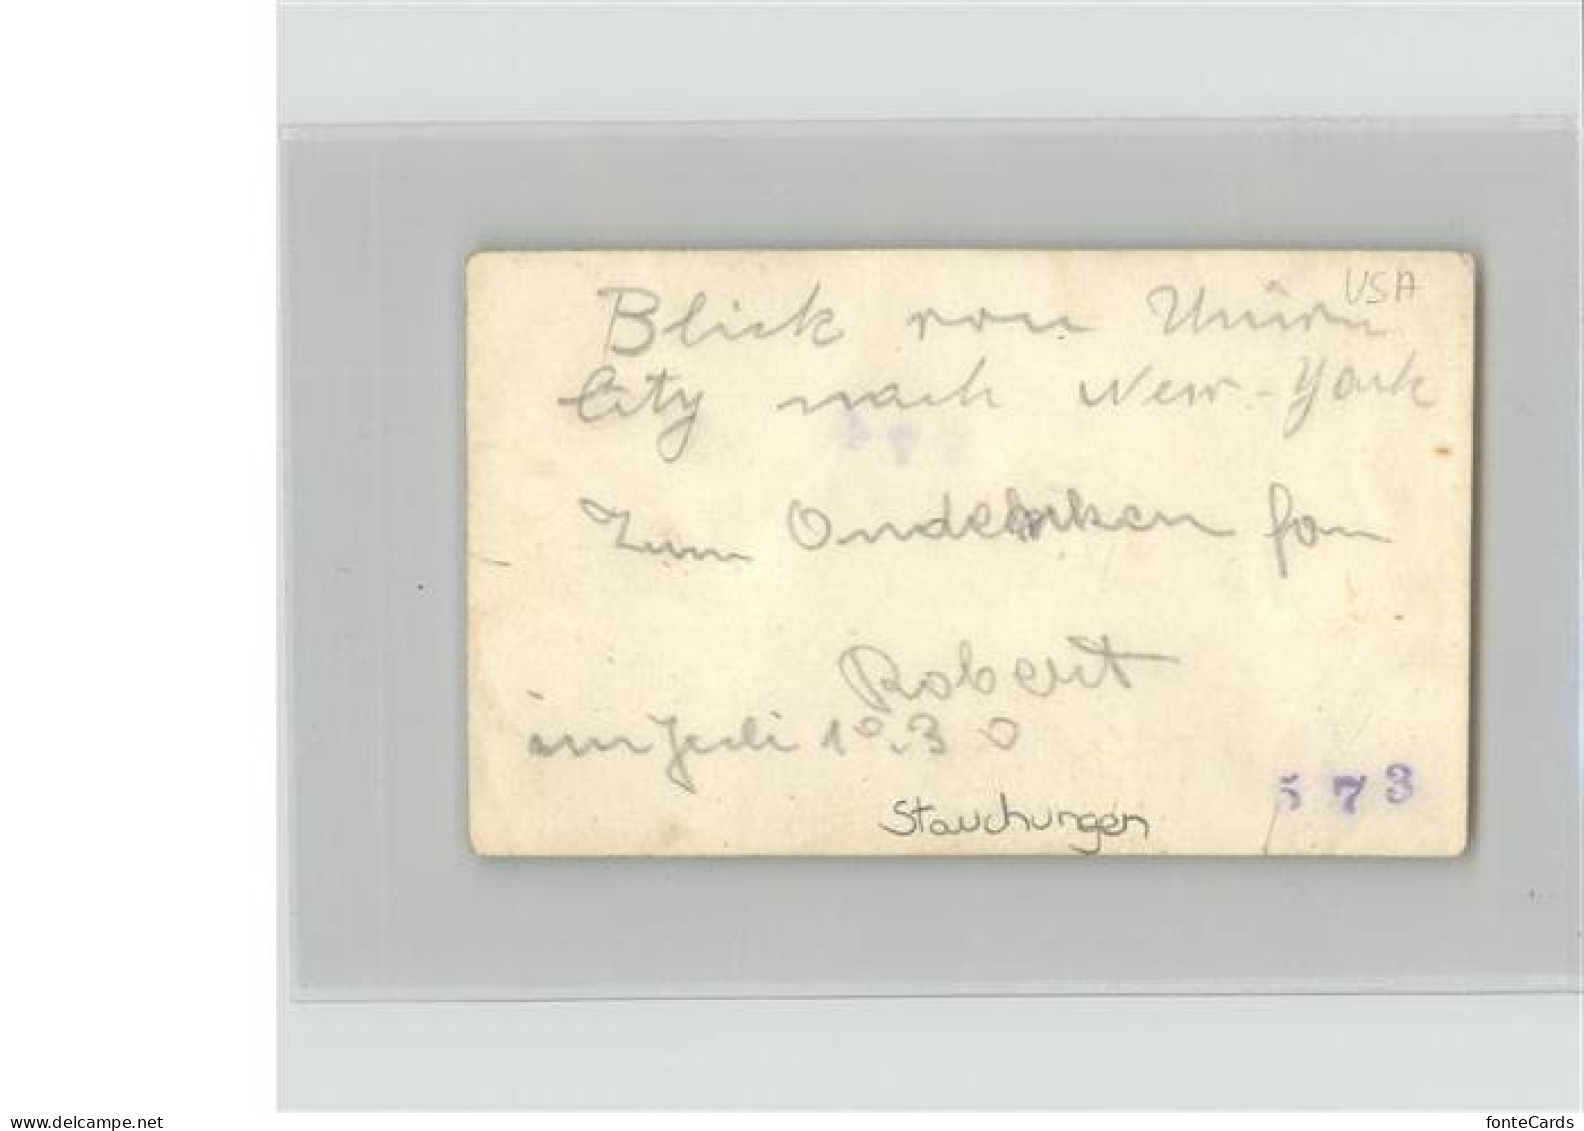 USA
Blick von Union
City nach New-York
Zum Ondenken fom
Robert
im Juli 10.30
Stauchungen
573
www.delcampe.net
fonteCards